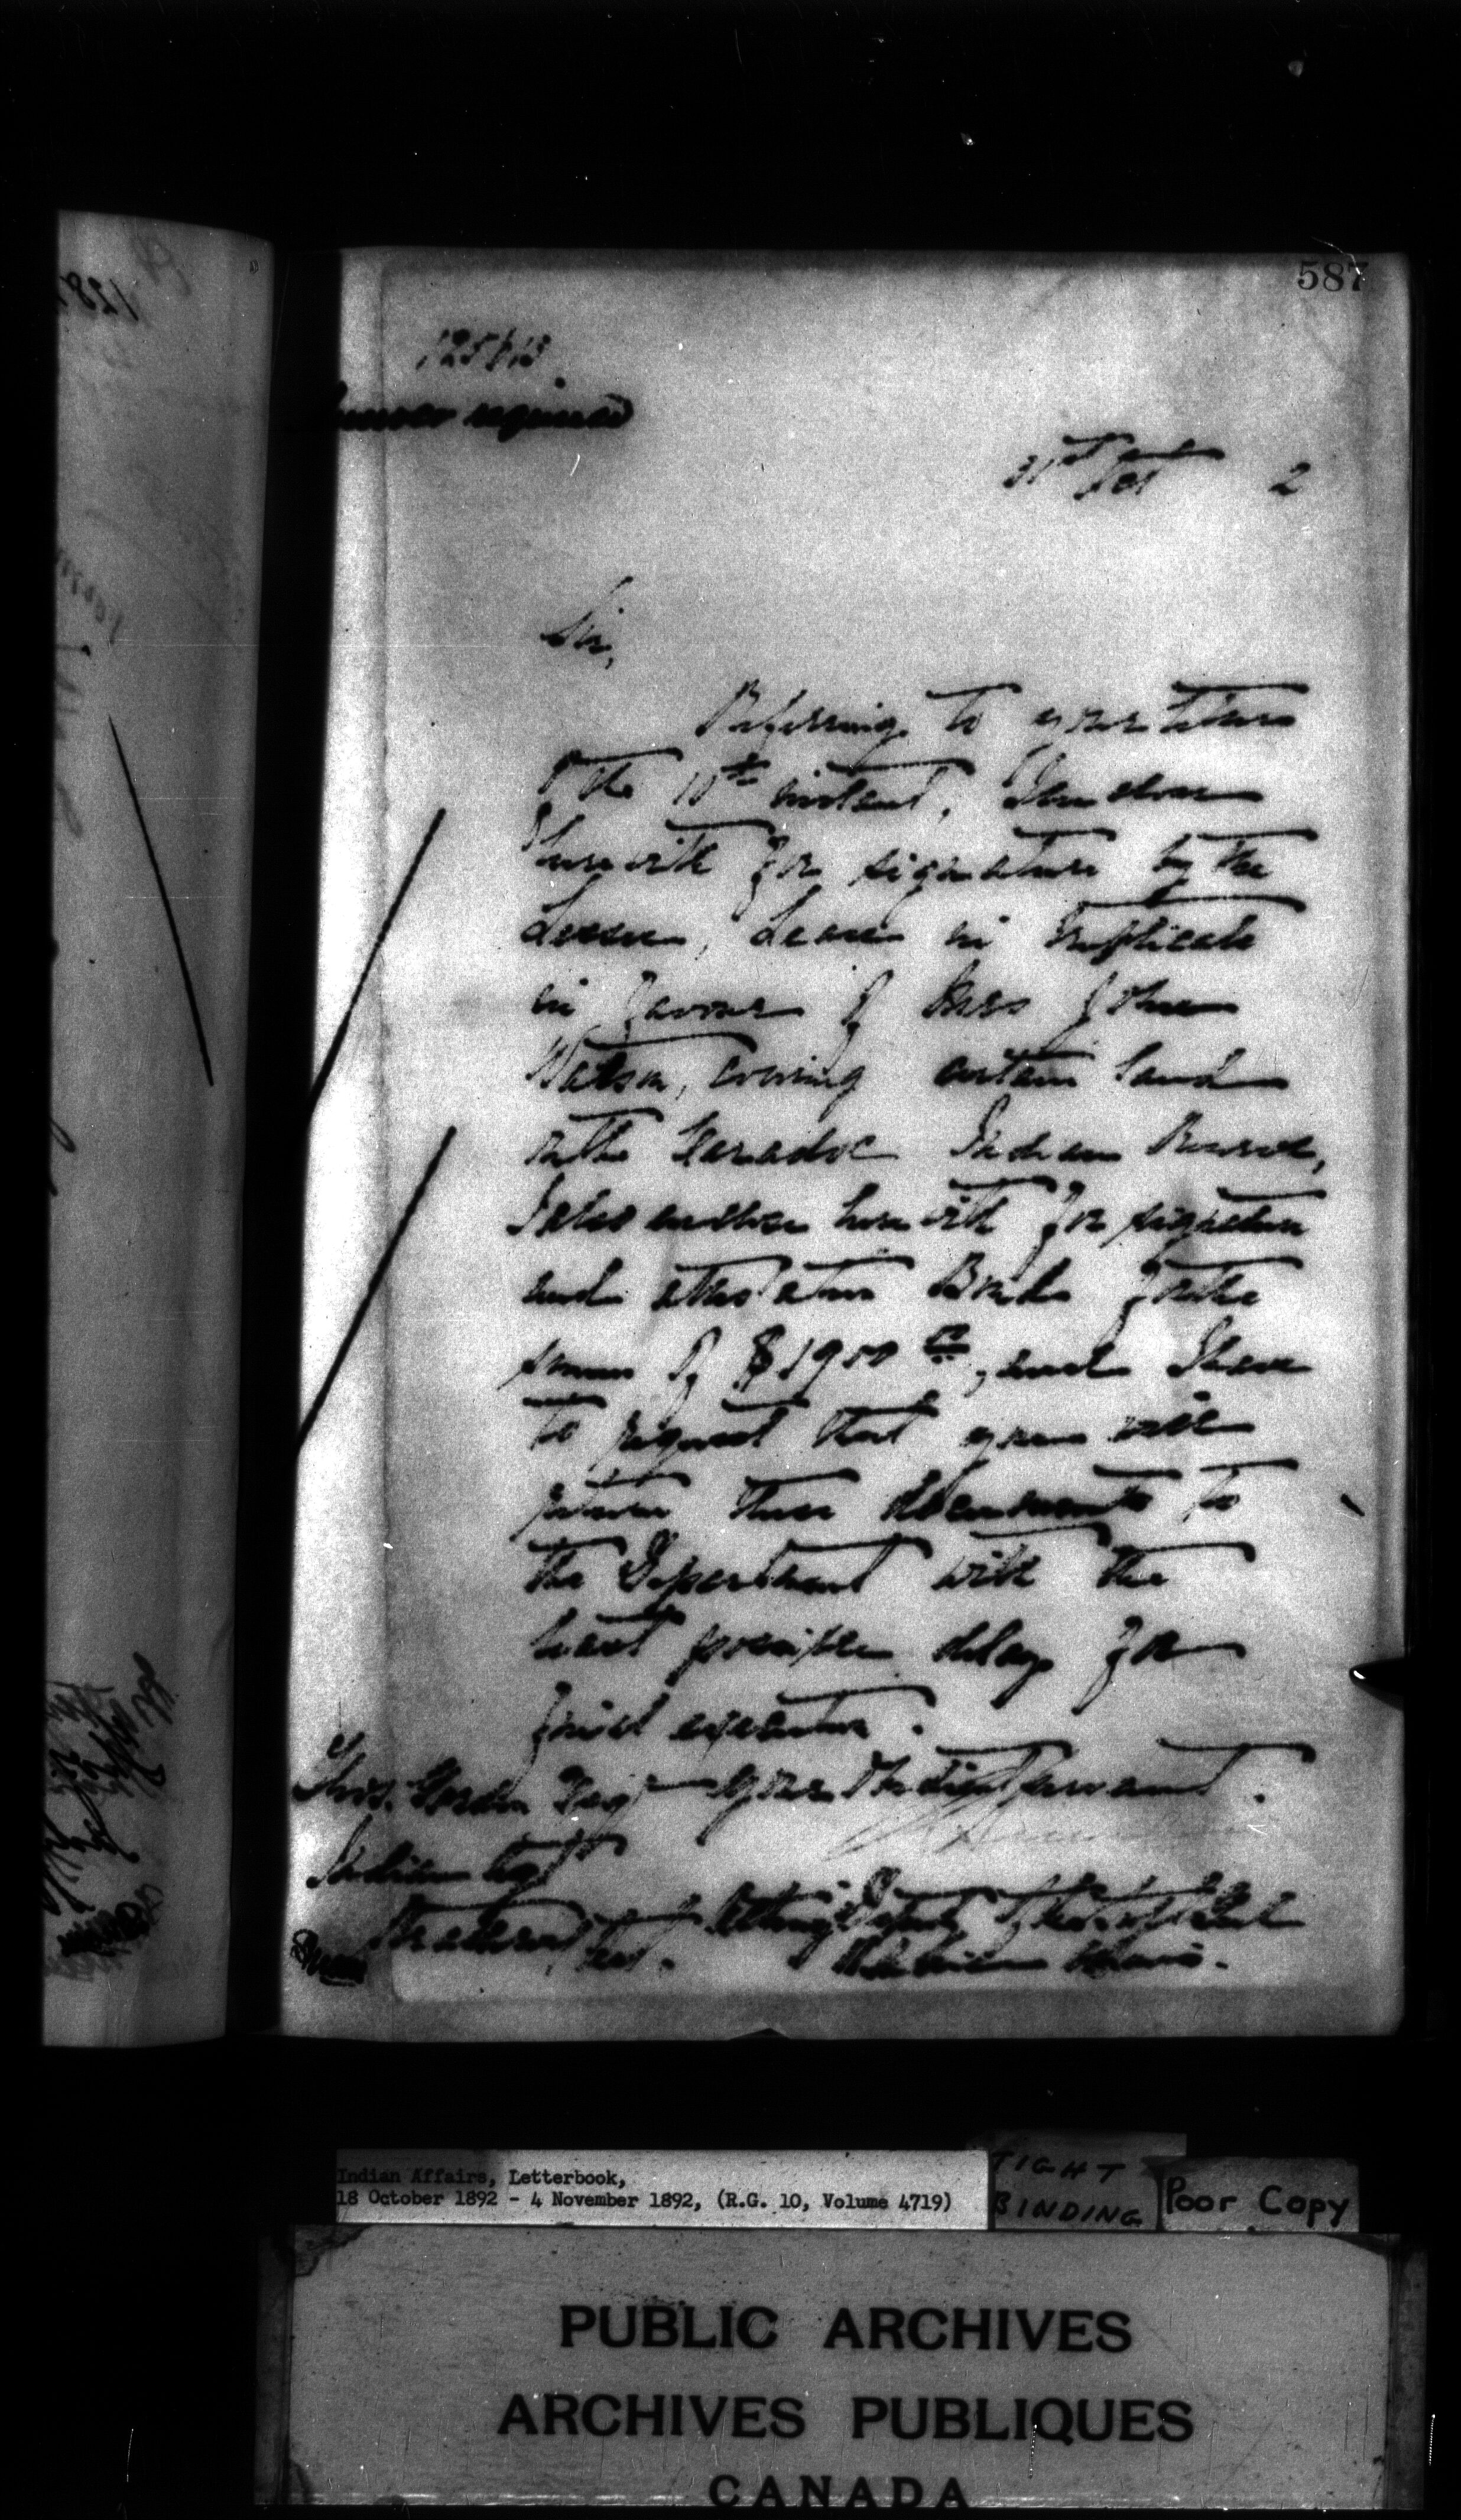 587
Answer required
31st Oct 2
Sir,
Referring to your letter
of the 10th instant, I enclose
herewith for signature by the
Lessee, Lease in triplicate
in favour of Mrs John
Watson, covering certain land
in the Caradoc Indian Reserve,
I also enclose herewith for signature
and attestation Bonds for the
sum of $1900
, and I have
to request that you will
return these documents to
the Department with the
least possible delay for
final execution.
Thos. Gordon Esq Your obedient servant.
Indian Agt
Strathroy, Ont. Acting Deputy of the Supt Genl
of Indian Affairs.
Indian Affairs, Letterbook,
18 October 1892 - 4 November 1892, (R.G. 10, Volume 4719)
TIGHT
BINDING
Poor Copy
PUBLIC ARCHIVES
ARCHIVES PUBLIQUES
CANADA